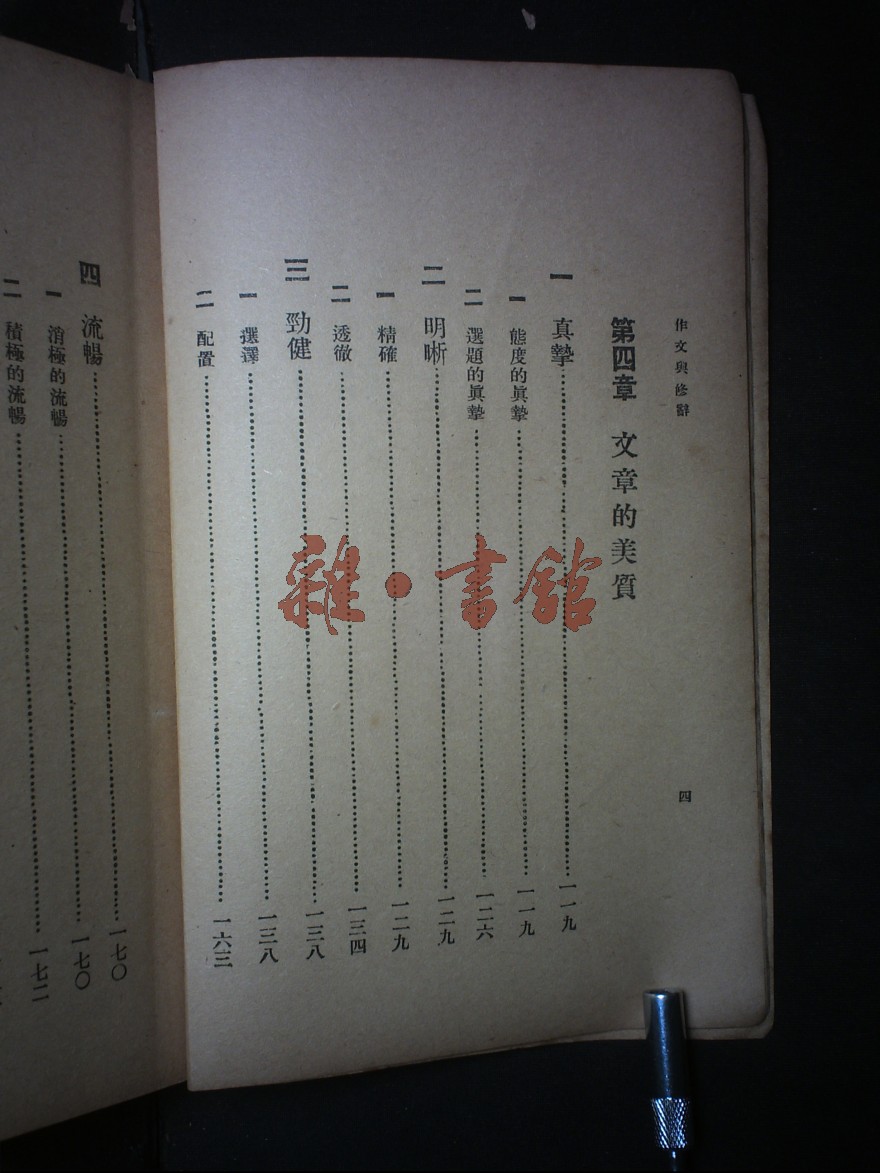 作文與修辭
四
第四章 文章的美質
一 真摯……一一九
一 態度的眞摯……一一九
二 選題的眞摯……一二六
二 明晰……一二九
一 精確……一二九
二 透徹……一三四
三 勁健……一三八
一 選擇……一三八
二 配置……一六三
四 流暢……一七〇
一 消極的流暢……一七〇
二 積極的流暢……一七二
雜·書館